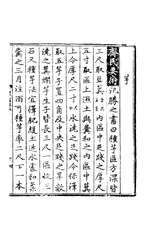 芋
齊民要術氾勝之書曰種芋區方深皆
三尺取豆萁內區中足踐之厚尺
五寸取區上濕土與糞和之內區中萁
上令厚尺二寸以水澆之足踐令保澤
取五芋子置四角及中央足踐之旱數
澆之萁爛芋生子皆長三尺一區收三
石又種芋法宜擇肥緩土近水處和柔
糞之三月注雨可種芋率二尺下一本